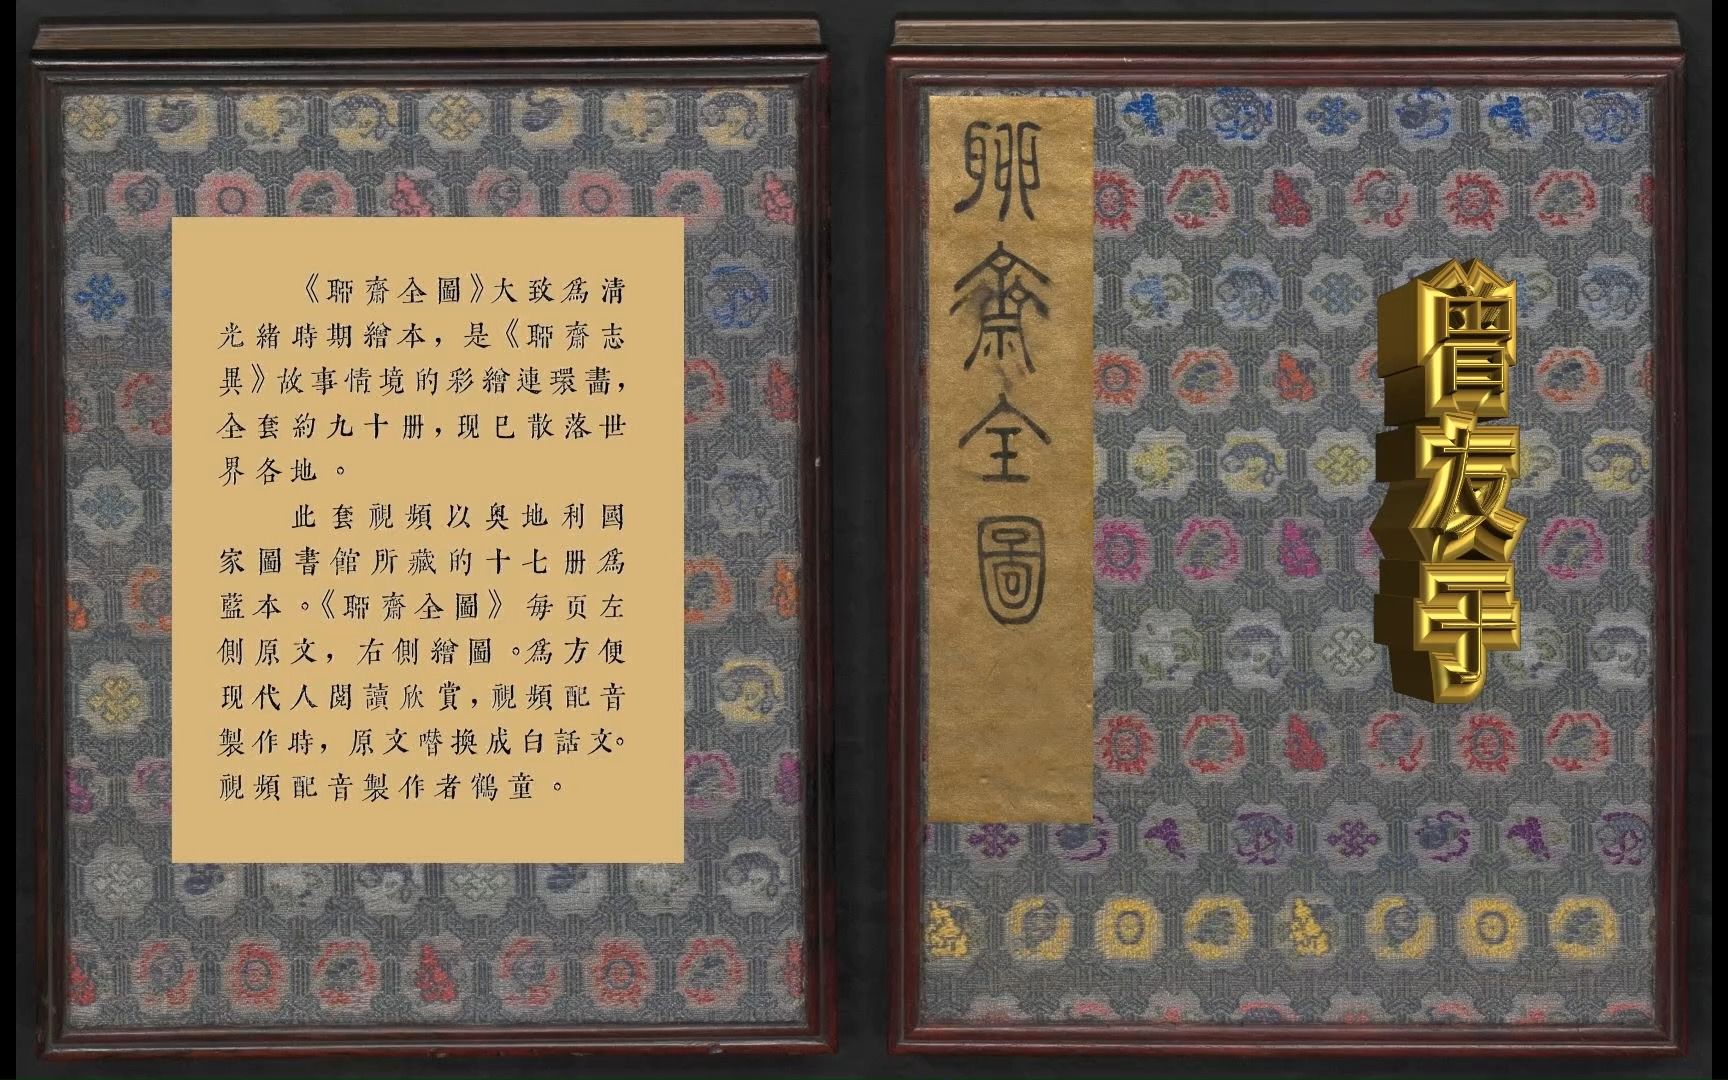 《聊齋全圖》大致爲清
光緒時期繪本，是《聊齋志
異》故事情境的彩繪連環畵，
全套約九十册，现已散落世
界各地。
此套視頻以奥地利國
家圖書館所藏的十七册爲
藍本。《聊齋全圖》每页左
側原文，右側繪圖。爲方便
现代人閲讀欣賞，視頻配音
製作時，原文嘈換成白話文。
視頻配音製作者鶴童。
聊齋全圖
曾友于